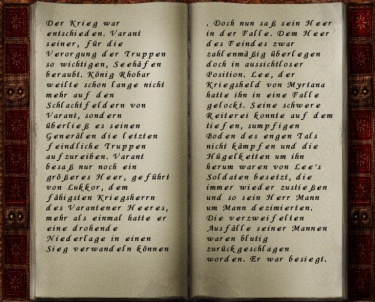 Der Krieg war
entschieden. Varant
seiner, für die
Verorgung der Truppen
so wichtigen, Seehäfen
beraubt. König Rhobar
weilte schon lange nicht
mehr auf den
Schlachtfeldern von
Varant, sondern
überließ es seinen
Generälen die letzten
feindliche Truppen
aufzureiben. Varant
besaß nur noch ein
größeres Heer, geführt
von Lukkor, dem
fähigsten Kriegsherrn
des Varantener Heeres,
mehr als einmal hatte er
eine drohende
Niederlage in einen
Sieg verwandeln können
. Doch nun saß sein Heer
in der Falle. Dem Heer
des Feindes zwar
zahlenmäßig überlegen
doch in aussichtloser
Position. Lee, der
Kriegsheld von Myrtana
hatte ihn in eine Falle
gelockt. Seine schwere
Reiterei konnte auf dem
tiefen, sumpfigen
Boden des engen Tals
nicht kämpfen und die
Hügelketten um ihn
herum waren von Lee's
Soldaten besetzt, die
immer wieder zustießen
und so sein Herr Mann
um Mann dezimierten.
Die verzweifelten
Ausfälle seiner Mannen
waren blutig
zurückgeschlagen
worden. Er war besiegt.